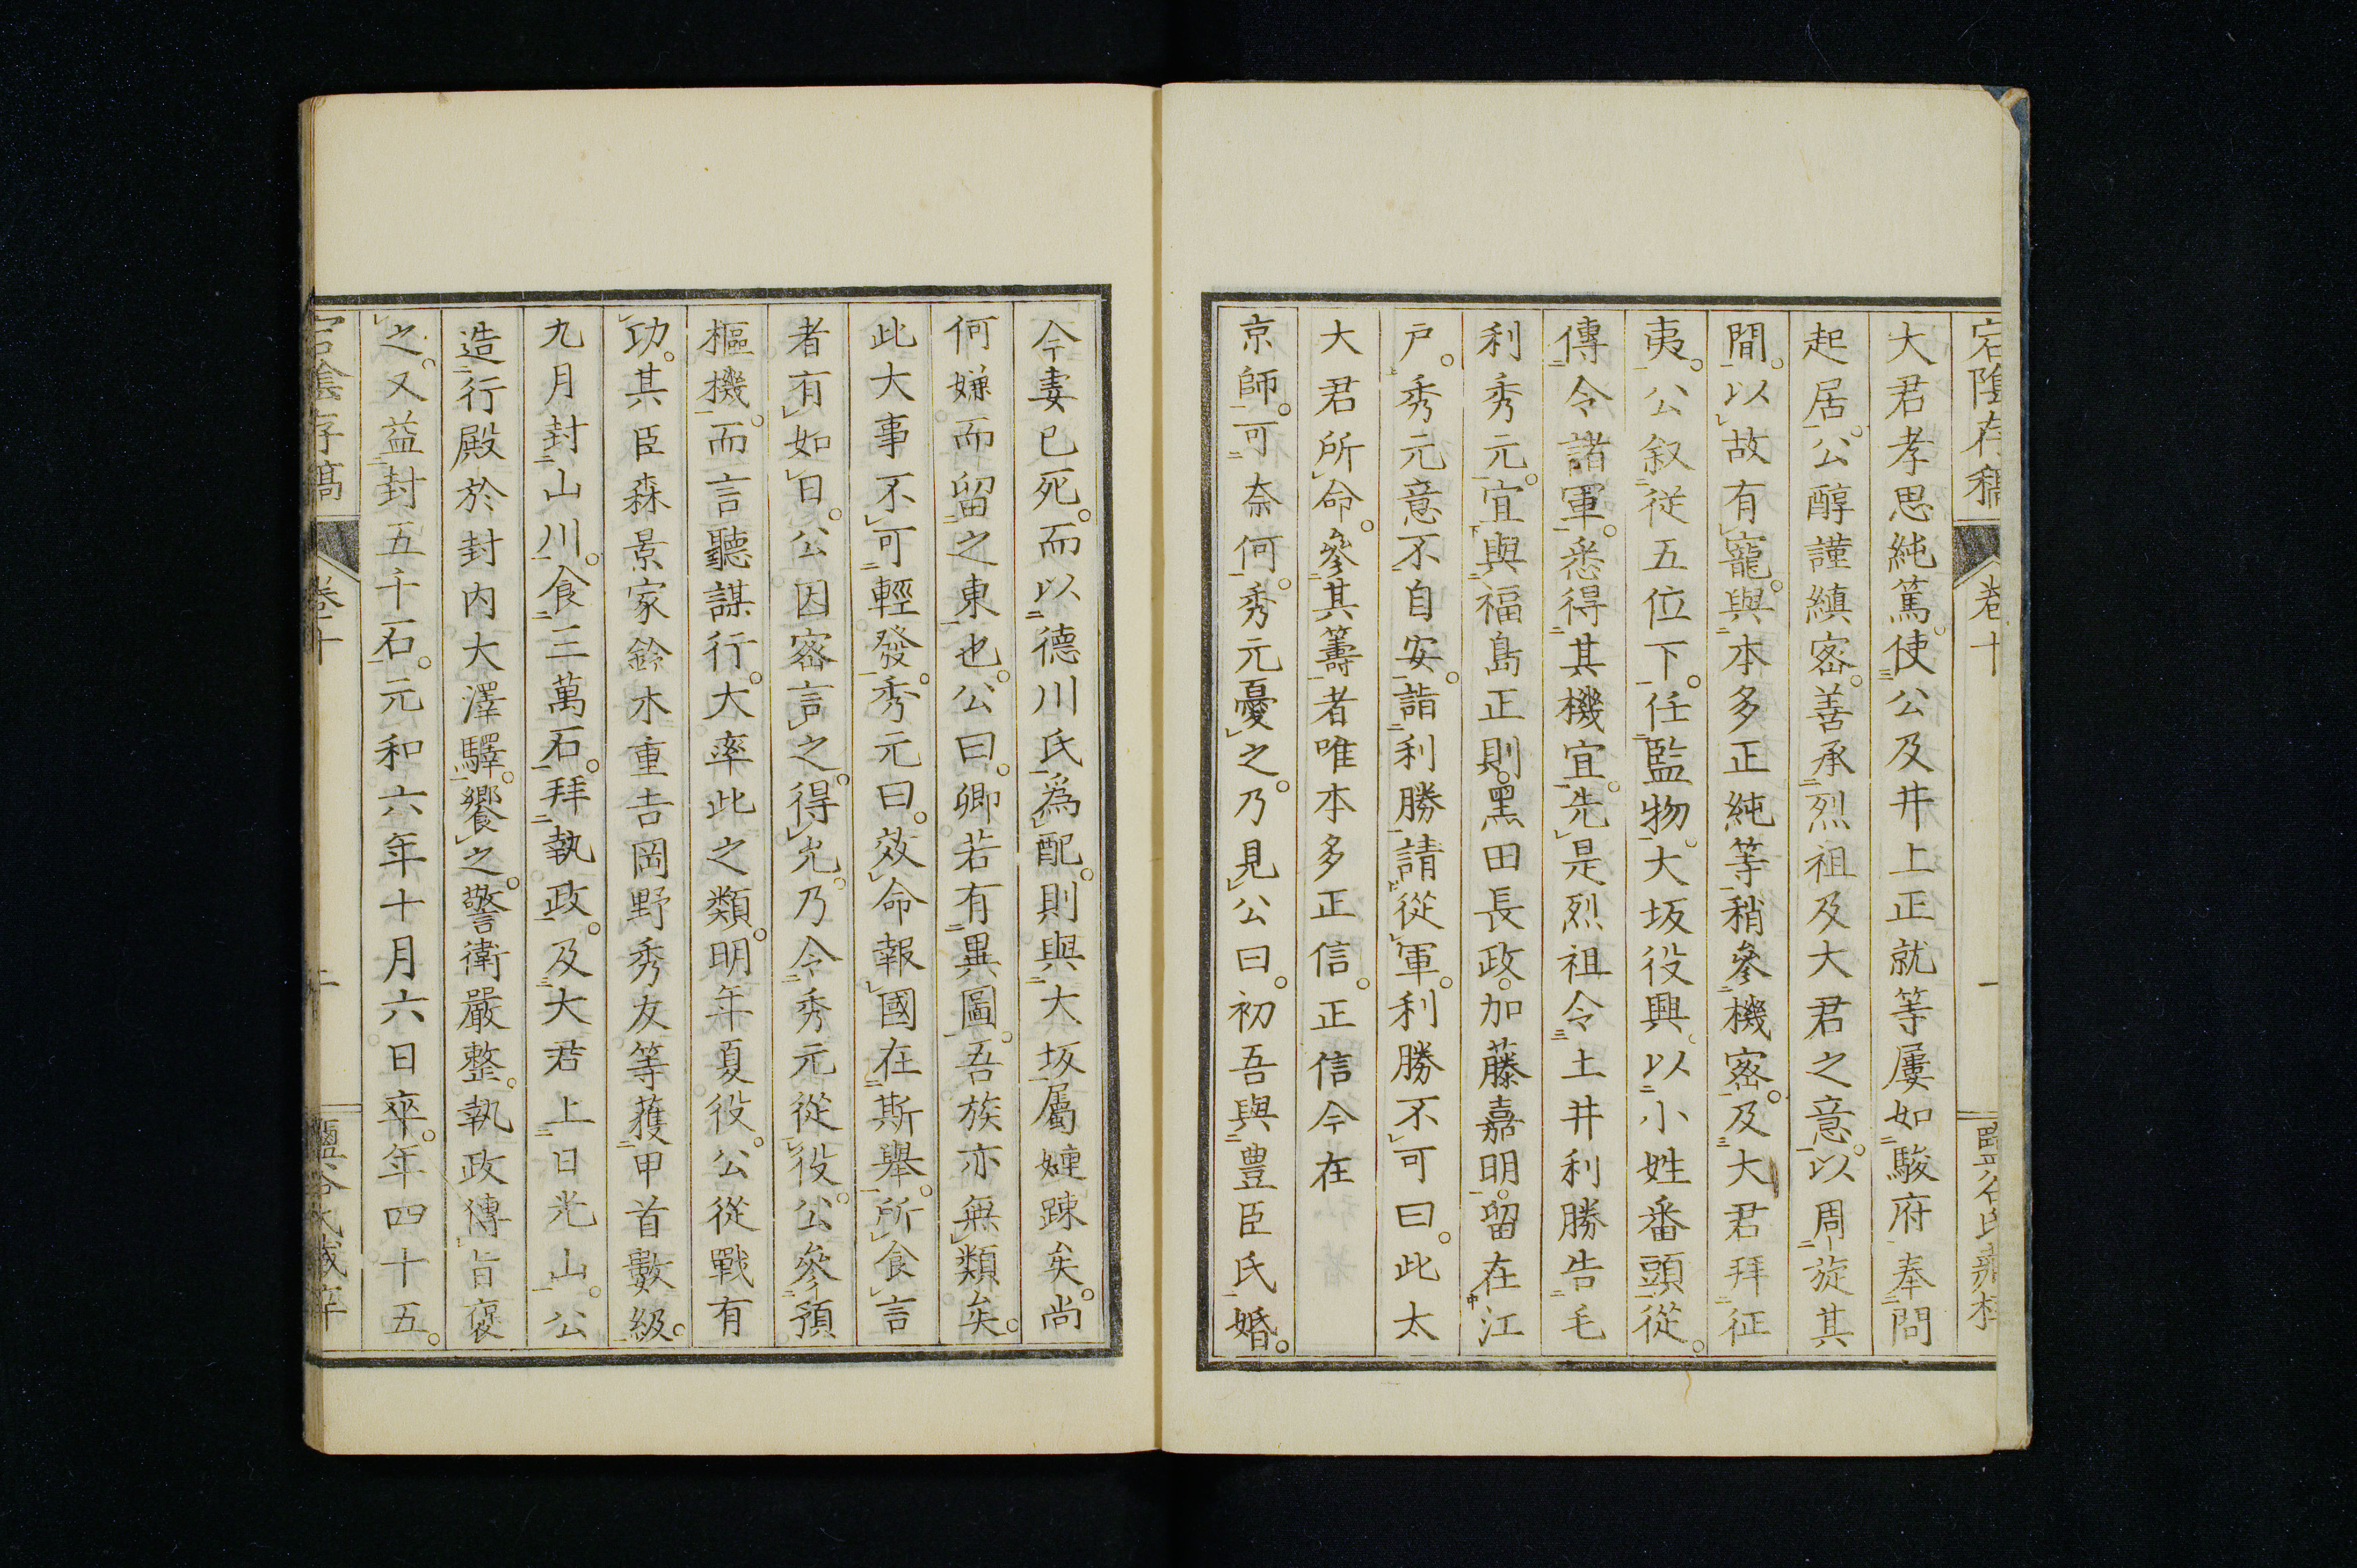 宕陰存稿 卷十 一
大君孝思純篤。使公及井上正就等屢如駿府奉問
起居。公醇謹縝密。善承烈祖及大君之意。以周旋其
間。以故有寵。與本多正純等稍參機密。及大君拜征
夷。公叙從五位下。任監物。大坂役興。以小姓番頭從。
傳令諸軍。悉得其機宜。先是烈祖令土井利勝告毛
利秀元。宜與福島正則。黑田長政。加藤嘉明。留在江
戸。秀元意不自安。詣利勝請從軍。利勝不可曰。此太
大君所命。參其籌者唯本多正信。正信今在
京師。可奈何。秀元憂之。乃見公曰。初吾與豊臣氏婚。
今妻已死。而以德川氏爲配。則與大坂屬婣踈矣。尚
何嫌而留之東也。公曰。卿若有異圖。吾族亦無類矣。
此大事不可輕發。秀元曰。效命報國在斯舉。所食言
者有如日。公因密言之。得允。乃令秀元從役。公參預
樞機。而言聽謀行。大率此之類。明年夏役。公從戰有
功。其臣森景家鈴木重吉岡野秀友等獲甲首數級。
九月封山川。食三萬石。拜執政。及大君上日光山。公
造行殿於封内大澤驛。饗之。警衛嚴整。執政傳旨褒
之。又益封五千石。元和六年十月六日卒。年四十五。
宕陰存稿 卷十